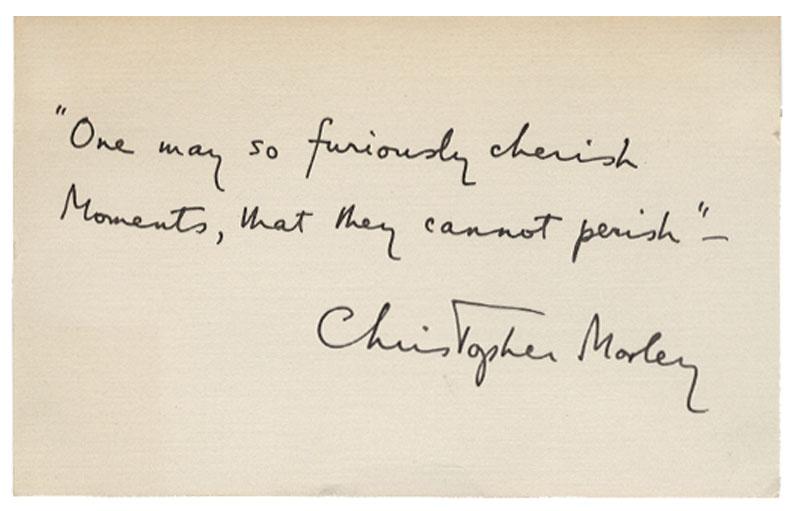 "One may so furiously cherish
Moments, that they cannot perish" —
Christopher Morley